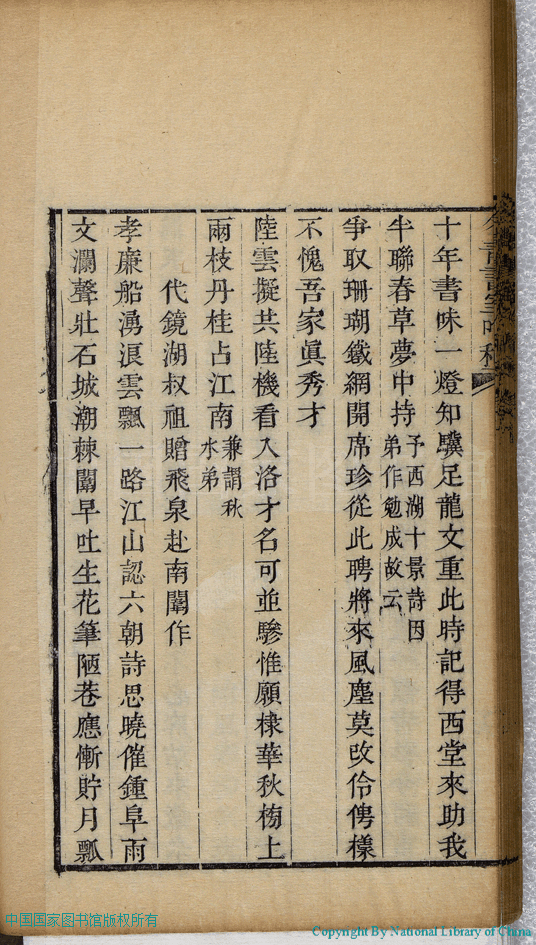 十年書味一燈知驥足龍文重此時記得西堂來助我
半聯春草夢中持予西湖十景詩因弟作勉成故云
爭取珊瑚鐵網開席珍從此聘將來風塵莫改伶俜樣
不愧吾家眞秀才
陸雲擬共陸機看入洛才名可並驂惟願棣華秋榜上
兩枝丹桂占江南兼謂秋水弟
代鏡湖叔祖贈飛泉赴南闈作
孝廉船湧浪雲飄一路江山認六朝詩思曉催鍾阜雨
文瀾聲壯石城潮棘闈早吐生花筆陋巷應慚貯月瓢
中国国家图书馆版权所有
Copyright By National Library of China